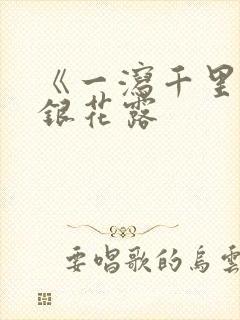 《一瀉千里
銀花露
要唱歌的烏雲